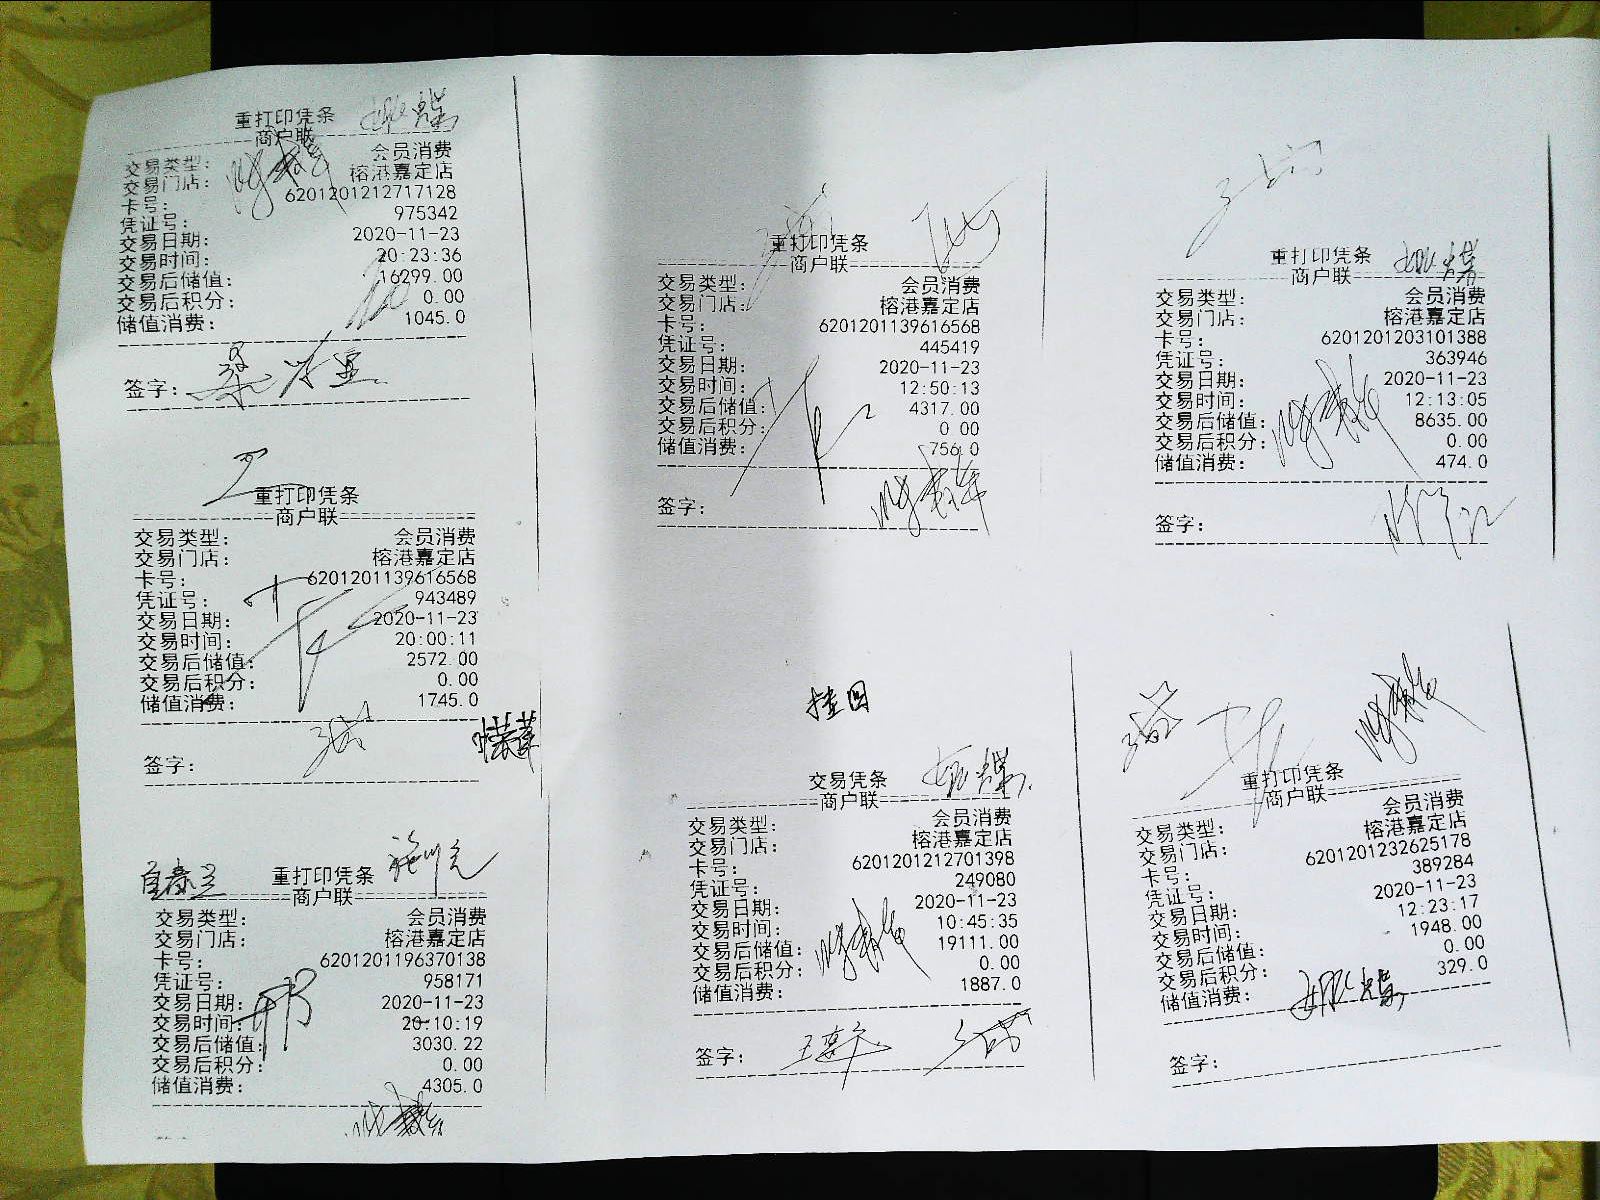 重打印凭条
商户联
交易类型： 会员消费
交易门店： 榕港嘉定店
卡号： 6201201212717128
凭证号： 975342
交易日期： 2020-11-23
交易时间： 20:23:36
交易后储值： 16299.00
交易后积分： 0.00
储值消费： 1045.0
签字：
重打印凭条
商户联
交易类型： 会员消费
交易门店： 榕港嘉定店
卡号： 6201201139616568
凭证号： 943489
交易日期： 2020-11-23
交易时间： 20:00:11
交易后储值： 2572.00
交易后积分： 0.00
储值消费： 1745.0
签字：
重打印凭条
商户联
交易类型： 会员消费
交易门店： 榕港嘉定店
卡号： 6201201196370138
凭证号： 958171
交易日期： 2020-11-23
交易时间： 20:10:19
交易后储值： 3030.22
交易后积分： 0.00
储值消费： 4305.0
重打印凭条
商户联
交易类型： 会员消费
交易门店： 榕港嘉定店
卡号： 6201201139616568
凭证号： 445419
交易日期： 2020-11-23
交易时间： 12:50:13
交易后储值： 4317.00
交易后积分： 0.00
储值消费： 756.0
签字：
挂图
交易凭条
商户联
交易类型： 会员消费
交易门店： 榕港嘉定店
卡号： 6201201212701398
凭证号： 249080
交易日期： 2020-11-23
交易时间： 10:45:35
交易后储值： 19111.00
交易后积分： 0.00
储值消费： 1887.0
签字：
重打印凭条
商户联
交易类型： 会员消费
交易门店： 榕港嘉定店
卡号： 6201201203101388
凭证号： 363946
交易日期： 2020-11-23
交易时间： 12:13:05
交易后储值： 8635.00
交易后积分： 0.00
储值消费： 474.0
签字：
重打印凭条
商户联
交易类型： 会员消费
交易门店： 榕港嘉定店
卡号： 6201201232625178
凭证号： 389284
交易日期： 2020-11-23
交易时间： 12:23:17
交易后储值： 1948.00
交易后积分： 0.00
储值消费： 329.0
签字：